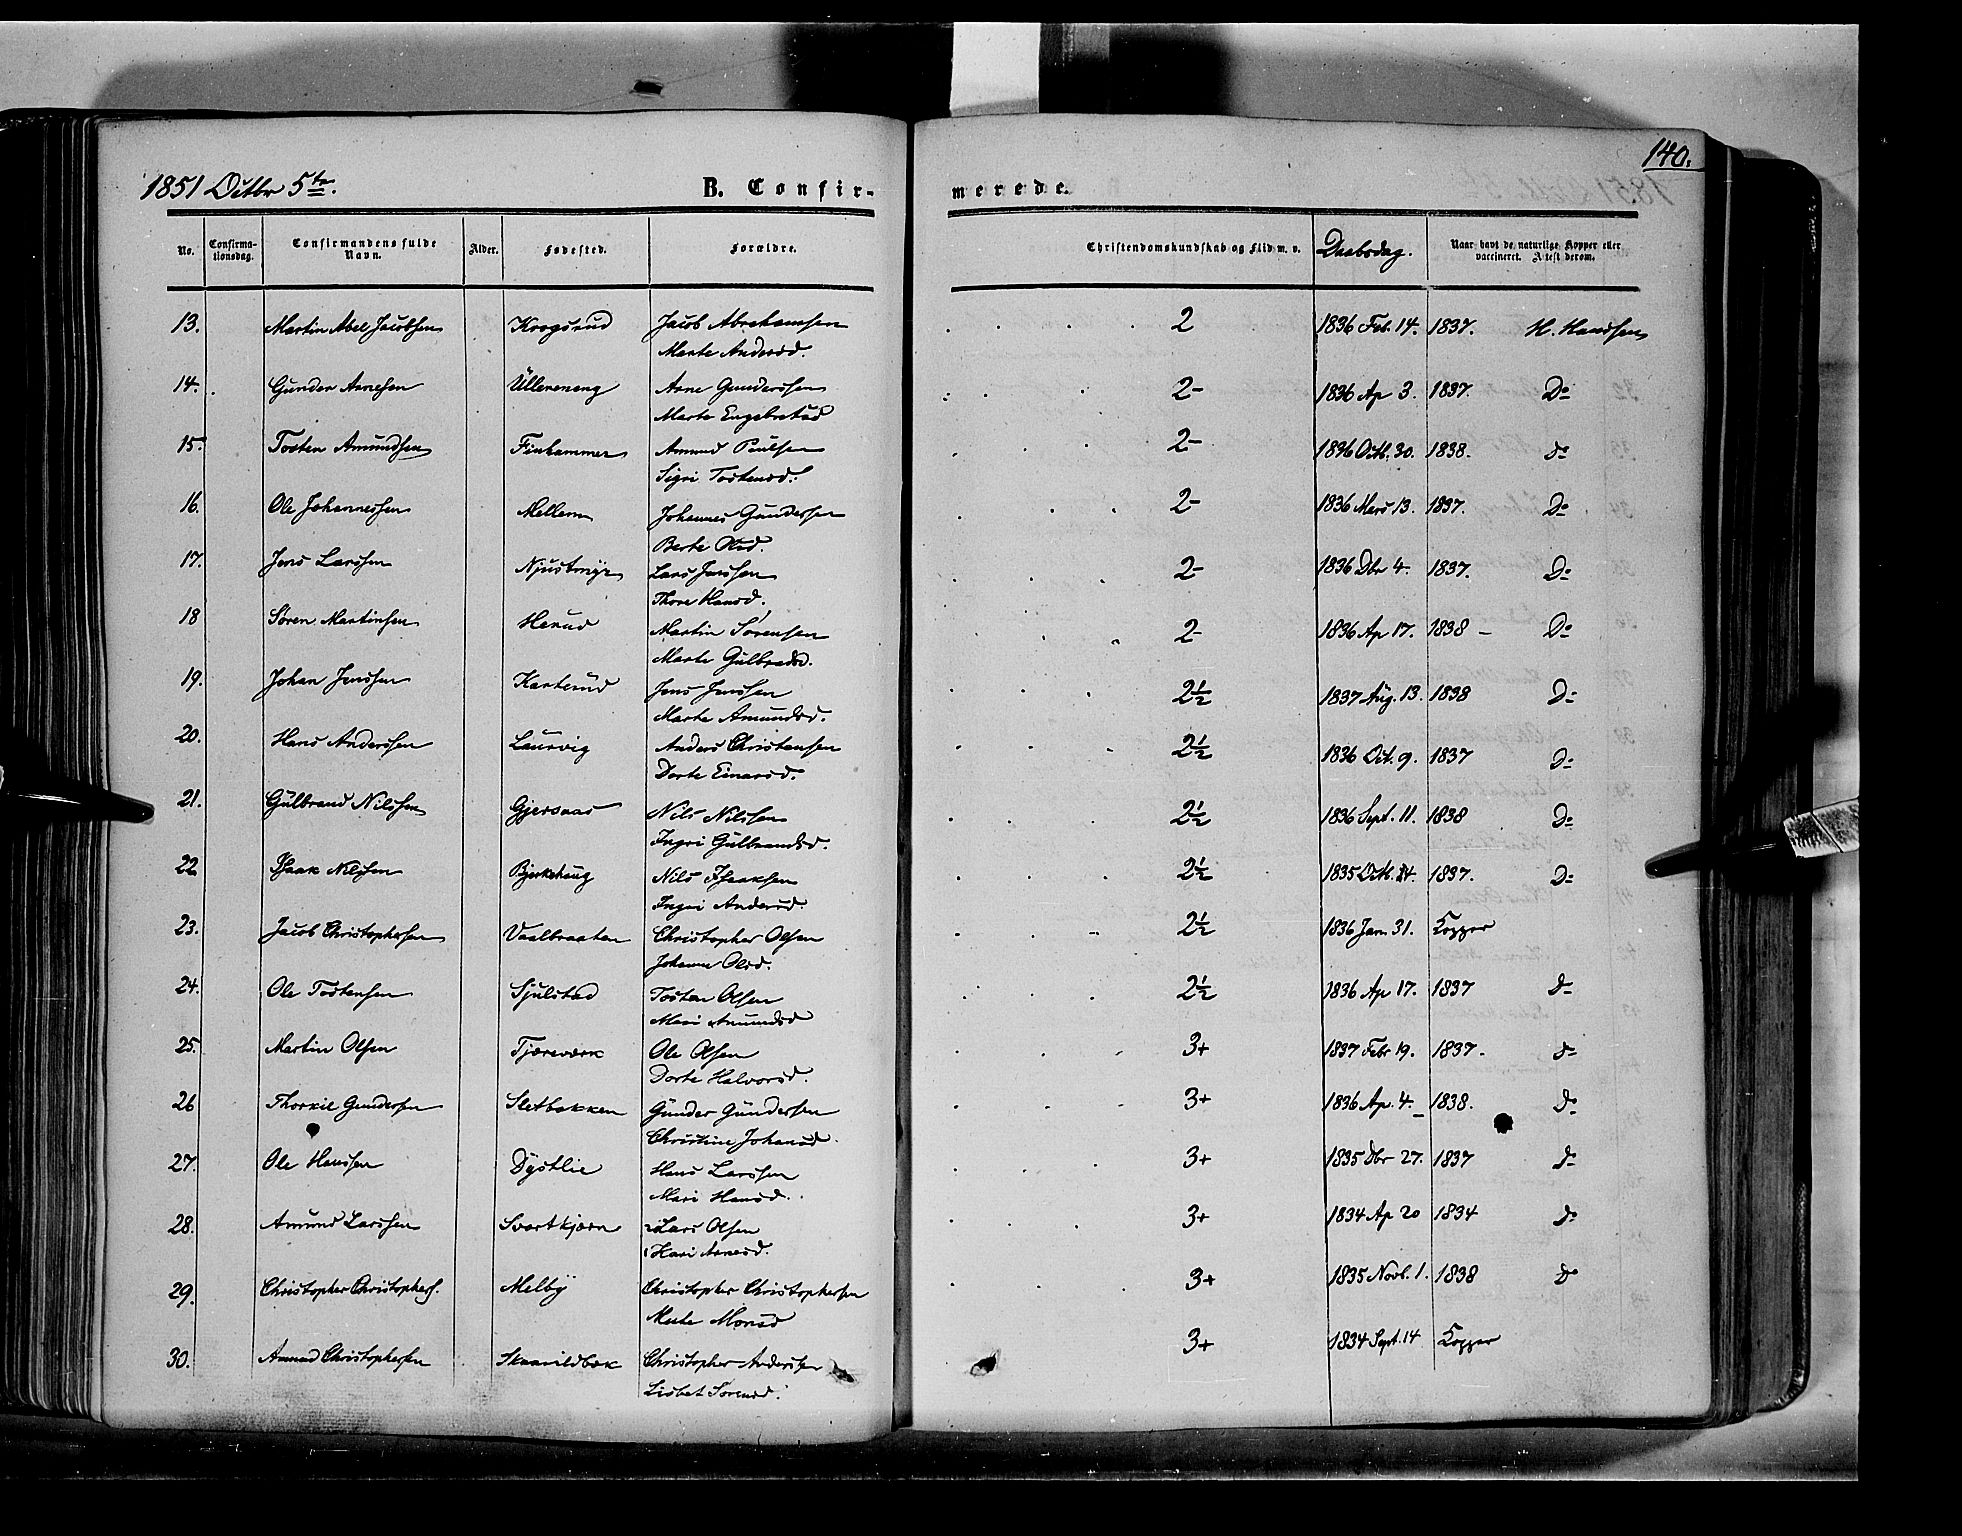 140.
1851 Octbr 5te. B. Confir- merede.
No. Confirma-tionsdag. Confirmandens fulde Navn. Alder. Fødested. Forældre. Christendomskundskab og Flid m. v. Daabsdag. Naar havt de naturlige Kopper eller vaccineret. Attest derom.
13. Martin Abel Jacobsen Krogsrud Jacob Abrahamsen 2 1836 Feb. 14. 1837. H. Hansen
Marte Andersd.
14. Gunder Arnesen Ullereneng Arne Gundersen 2- 1836 Ap 3. 1837. Do
Marte Engebretsd
15. Tosten Amundsen Finhammer Amund Paulsen 2- 1836 Octb. 30. 1838. do
Sigri Tostensd.
16. Ole Johannessen Mellem Johannes Gundersen 2- 1836 Mars 13. 1837. Do
Berte Olsd.
17. Jens Larssen Njustmyr Lars Jenssen 2- 1836 Dbr 4. 1837. Do
Thore Hansd.
18 Søren Martinsen Herud Martin Sørensen 2- 1836 Ap 17. 1838 - Do
Marte Gulbrandsd.
19. Johan Jenssen Karterud Jens Jenssen 2½ 1837 Aug. 13. 1838 Do
Marte Amundsd.
20. Hans Anderssen Laurvig Anders Christensen 2½ 1836 Oct. 9. 1837 Do
Dorte Einarsd.
21. Gulbrand Nilssen Gjersaas Nils Nilssen 2½ 1836 Sept. 11. 1838 Do
Ingri Gulbrandsd.
22 Isaak Nilssen Bjerkehaug Nils Isaaksen 2½ 1835 Octb. 1837. Do
Ingri Andersd.
23. Jacob Christophersen Vaalbraaten Christopher Olsen 2½ 1836 Jan. 31. Kopper
Johanne Olsd.
24. Ole Tostensen Sjulstad Tosten Olsen 2½ 1836 Ap 17. 1837 do
Mari Amundsd
25. Martin Olsen Tjæreværk Ole Olsen 3+ 1837 Febr 19. 1837. do
Dorte Halvorsd.
26 Thorkil Gundersen Sletbakken Gunder Gundersen 3+ 1836 Ap. 4. 1838. Do
Christine Johansd.
27. Ole Hanssen Dystlie Hans Larssen 3+ 1835 Dbr 27. 1837 do
Mari Hansd.
28. Amund Larssen Svartkjærn Lars Olsen 3+ 1834 Ap 20 1834 do
Kari Arnesd.
29. Christopher Christophers. Melby Christopher Christophersen 3+ 1835 Novb. 1. 1838 do
Monsd
30. Amund Christophersen Skaarildbæk Christopher Andersen 3+ 1834 Sept. 14 Kopper
Lisbet Sørensd.